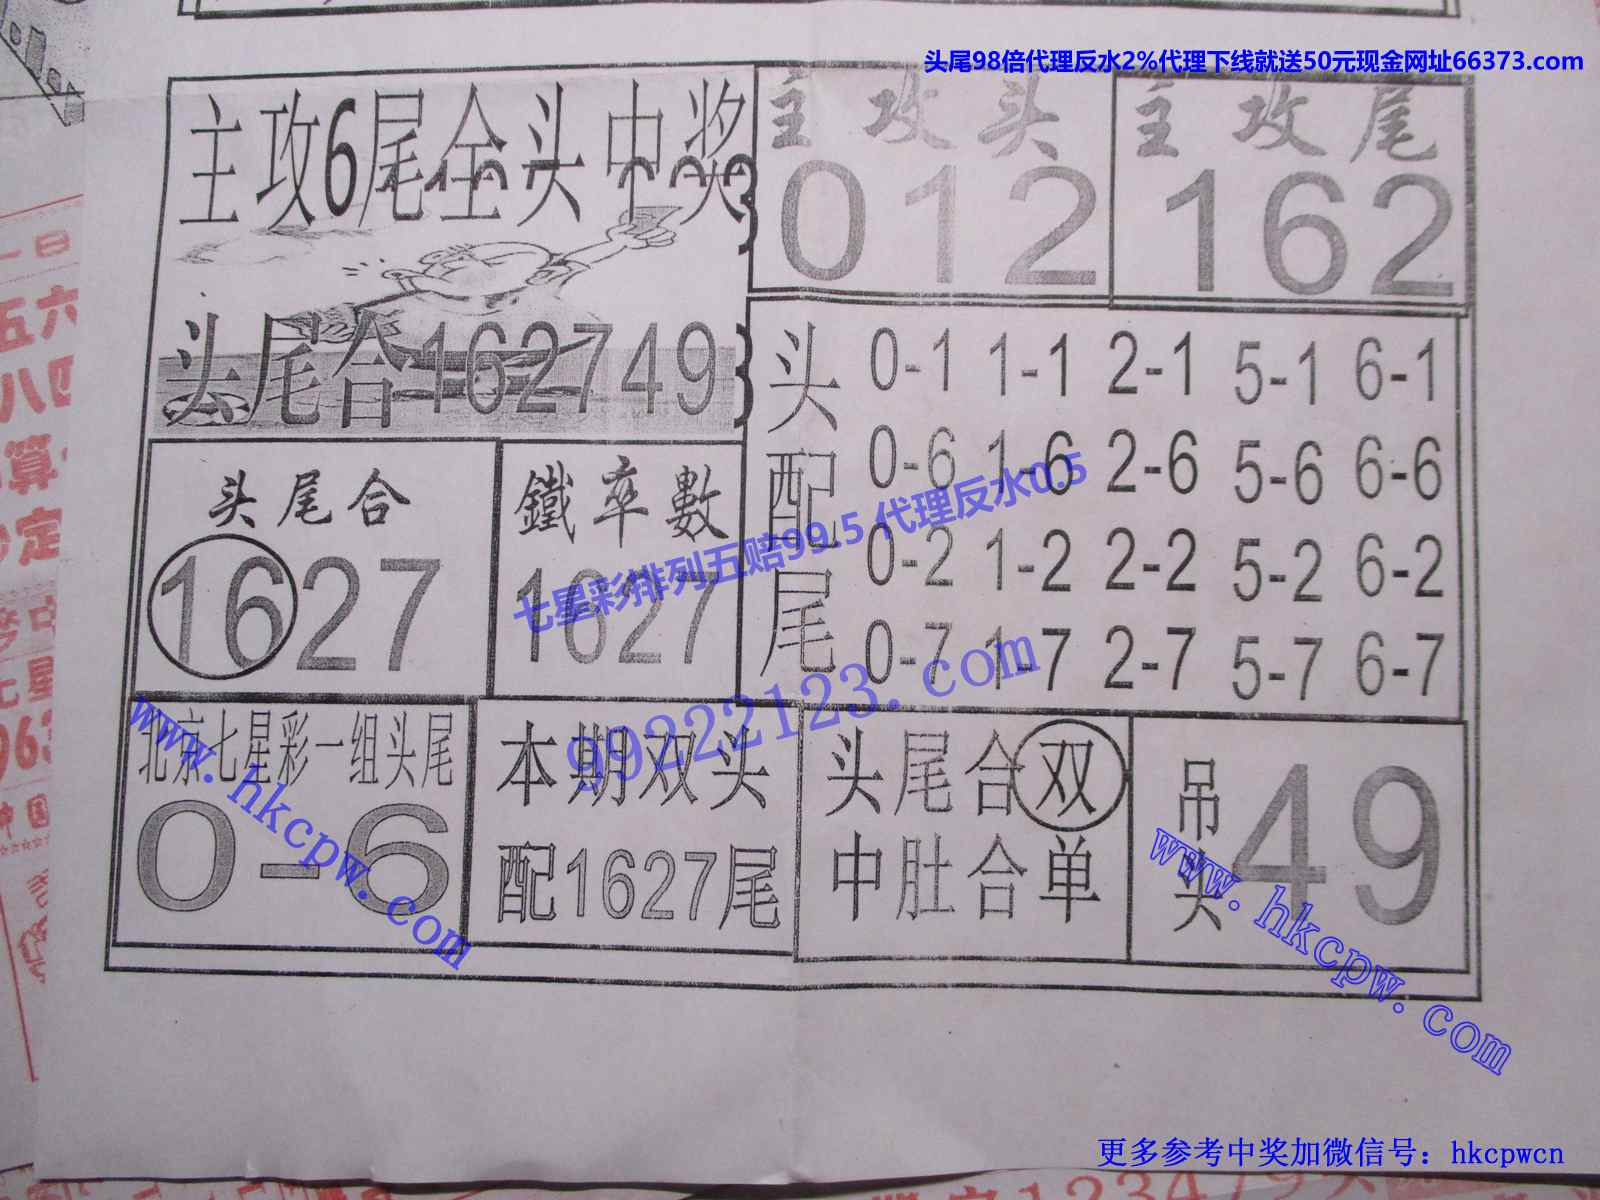 头尾98倍代理反水2%代理下线就送50元现金网址66373.com
主攻6尾全头中奖
主攻头
012
主攻尾
162
头尾合162749
头配尾
0-1 1-1 2-1 5-1 6-1
0-6 1-6 2-6 5-6 6-6
0-2 1-2 2-2 5-2 6-2
0-7 1-7 2-7 5-7 6-7
头尾合
1627
鐵率數
1627
七星彩排列五赔99.5代理反水0.5
99222123.com
北京七星彩一组头尾
0-6
www.hkcpw.com
本期双头
配1627尾
头尾合双
中肚合单
吊头49
www.hkcpw.com
一日
五六
八四
算
定
七星
963
中国
更多参考中奖加微信号：hkcpwcn